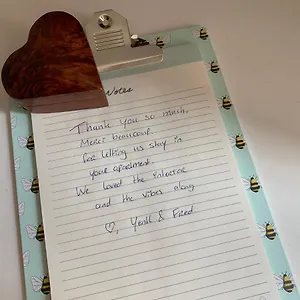 Notes
Thank you so much,
Merci beaucoup
for letting us stay in
your apartment.
We loved the interior
and the vibes
♡, & Fred